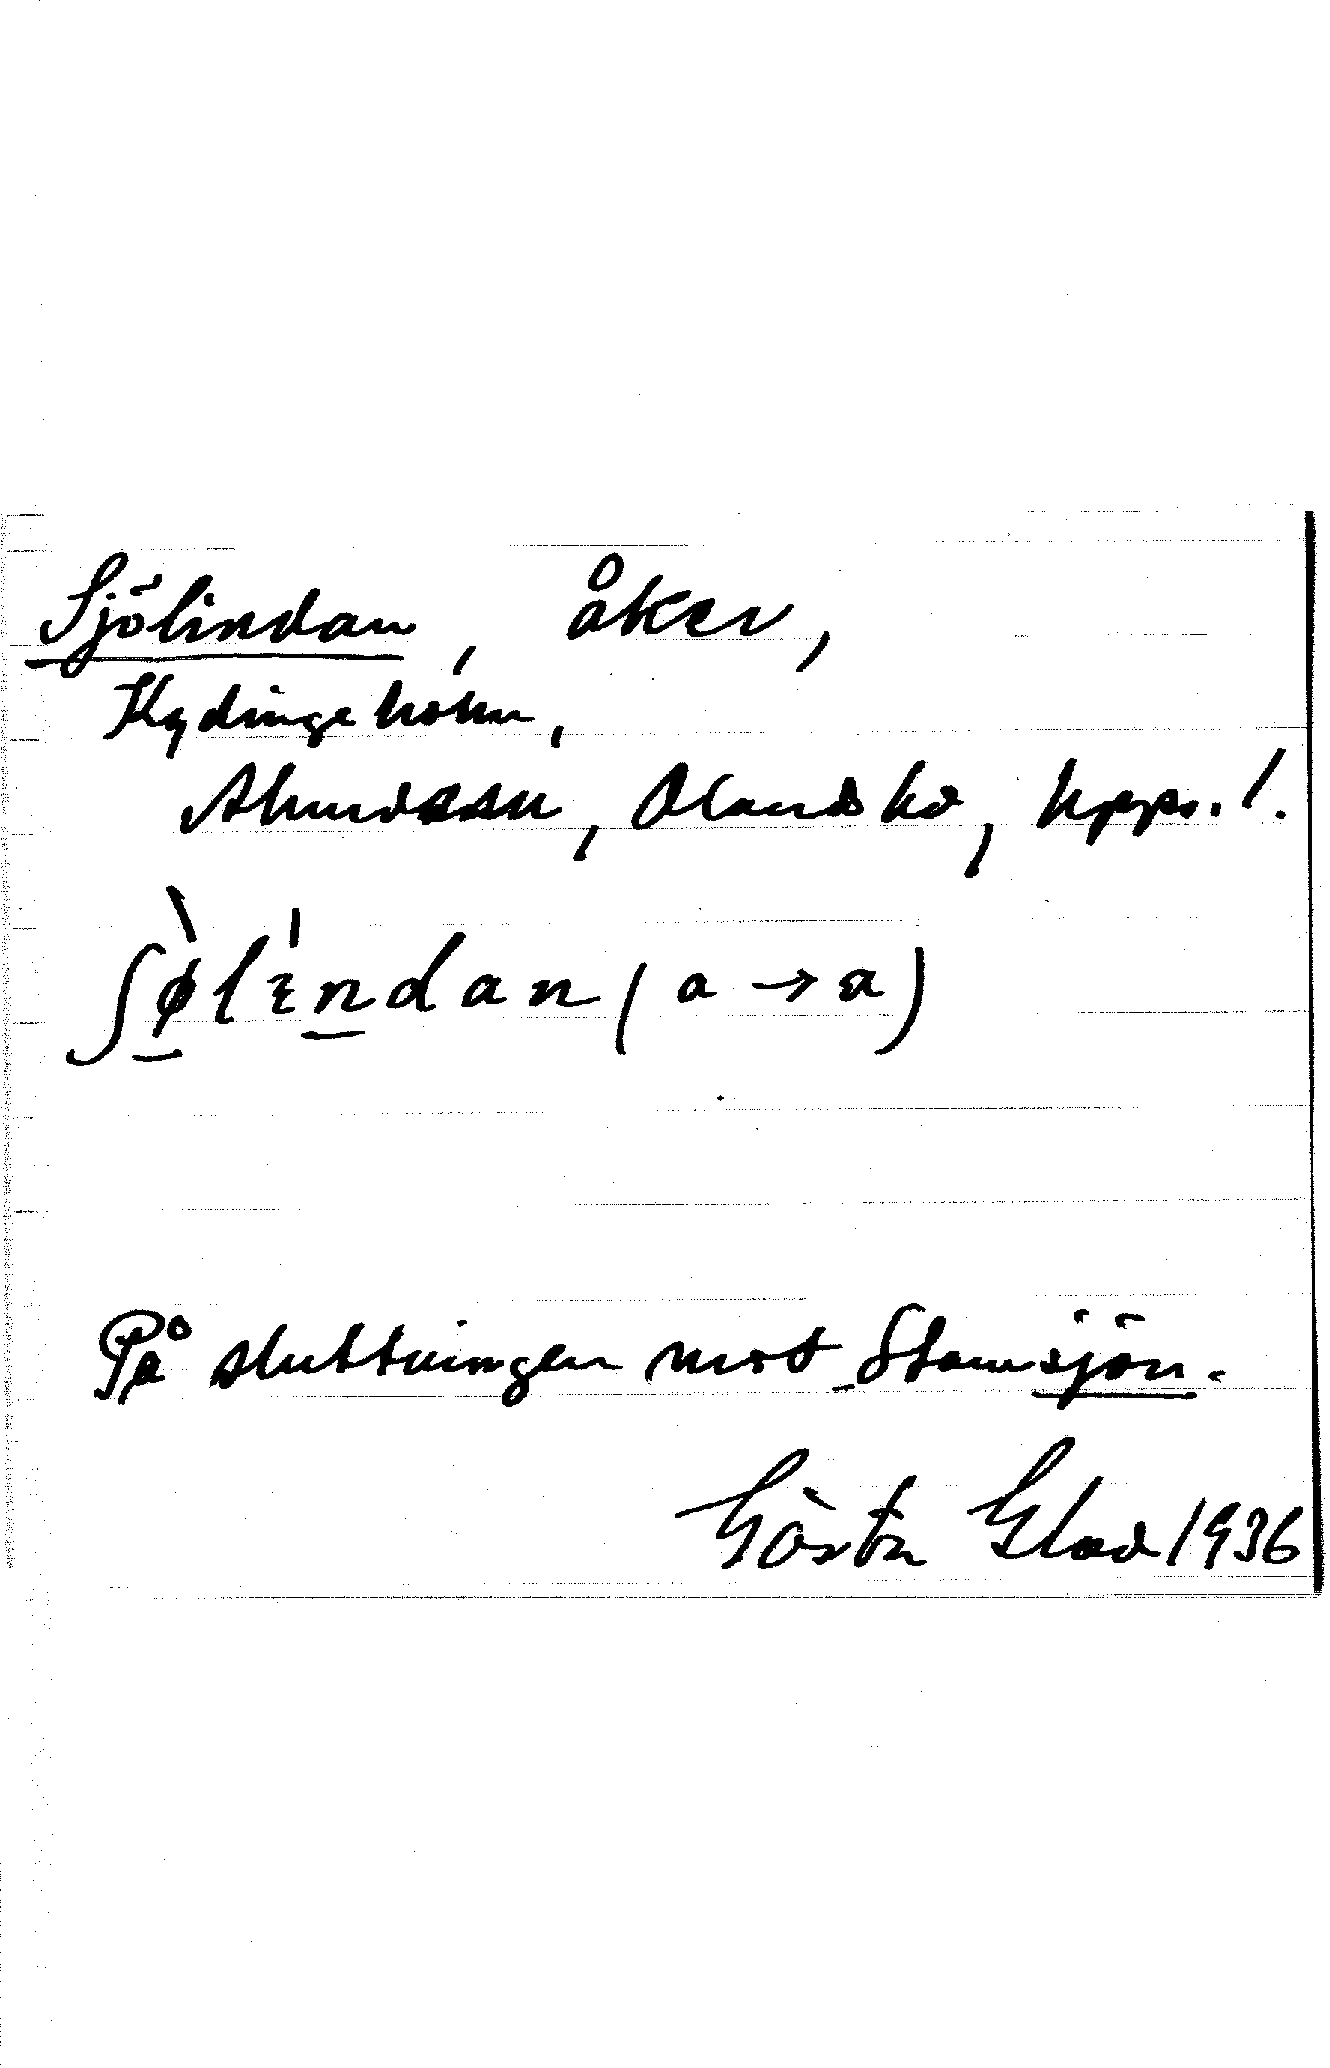 Sjölindan, åker,
Kydingeholm,
Almunge sn, Olands hd, Upps. l.
ʃø̀lɪ́ndan (a → a)
På sluttningen mot Stamsjön.
Gösta Glad 1936